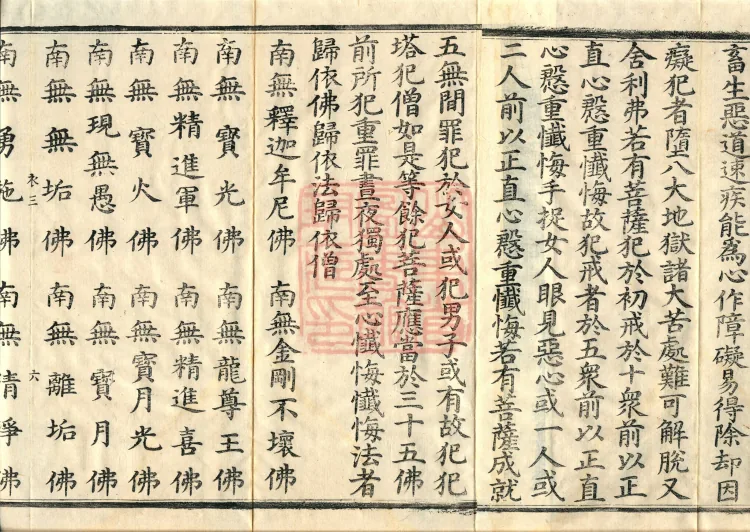 畜生惡道速疾能為心作障礙易得除却因
癡犯者墮八大地獄諸大苦處難可解脫又
舍利弗若有菩薩犯於初戒於十衆前以正
直心慇重懺悔故犯戒者於五衆前以正直
心慇重懺悔手捉女人眼見惡心或一人或
二人前以正直心慇重懺悔若有菩薩成就
五無間罪犯於女人或犯男子或有故犯犯
塔犯僧如是等餘犯菩薩應當於三十五佛
前所犯重罪晝夜獨處至心懺悔懺悔法者
歸依佛歸依法歸依僧
南無釋迦牟尼佛 南無金剛不壞佛
南無寶光佛 南無龍尊王佛
南無精進軍佛 南無精進喜佛
南無寶火佛 南無寶月光佛
南無現無愚佛 南無寶月佛
南無無垢佛 南無離垢佛
衣三 六
南無勇施佛 南無清淨佛